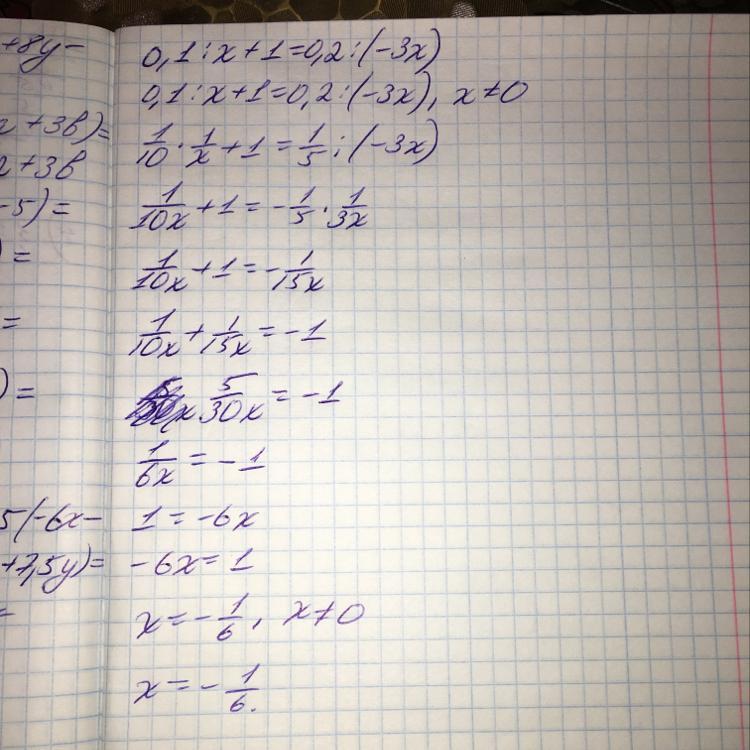 +8y-
+3b)=
+3b
-5)=
)=
=
)=
5(-6x-
+7,5y)=
=
0,1:x+1=0,2:(-3x)
0,1:x+1=0,2:(-3x), x≠0
1/10·1/x+1=1/5:(-3x)
1/10x+1=-1/5·1/3x
1/10x+1=-1/15x
1/10x+1/15x=-1
5/30x=-1
1/6x=-1
1=-6x
-6x=1
x=-1/6, x≠0
x=-1/6.